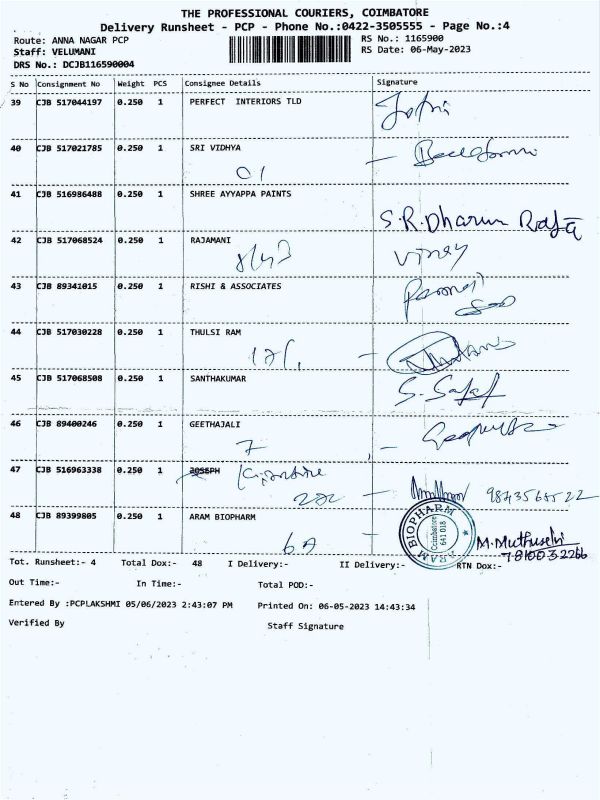 THE PROFESSIONAL COURIERS, COIMBATORE
Delivery Runsheet - PCP - Phone No.:0422-3505555 - Page No.:4
Route: ANNA NAGAR PCP RS No.: 1165900
Staff: VELUMANI RS Date: 06-May-2023
DRS No.: DCJB116590004
S No Consignment No Weight PCS Consignee Details Signature
39 CJB 517044197 0.250 1 PERFECT INTERIORS TLD
40 CJB 517021785 0.250 1 SRI VIDHYA
01
41 CJB 516986488 0.250 1 SHREE AYYAPPA PAINTS
S.R.Dharun Raja
42 CJB 517068524 0.250 1 RAJAMANI
Vinay
43 CJB 89341015 0.250 1 RISHI & ASSOCIATES
44 CJB 517030228 0.250 1 THULSI RAM
45 CJB 517068508 0.250 1 SANTHAKUMAR
46 CJB 89400246 0.250 1 GEETHAJALI
7
47 CJB 516963338 0.250 1 JOSEPH
202
48 CJB 89399805 0.250 1 ARAM BIOPHARM
ARAM BIOPHARM
Coimbatore
641 018
6A
M.Muthuselvi
7810032266
Tot. Runsheet:- 4 Total Dox:- 48 I Delivery:- II Delivery:- RTN Dox:-
Out Time:- In Time:- Total POD:-
Entered By :PCPLAKSHMI 05/06/2023 2:43:07 PM Printed On: 06-05-2023 14:43:34
Verified By Staff Signature